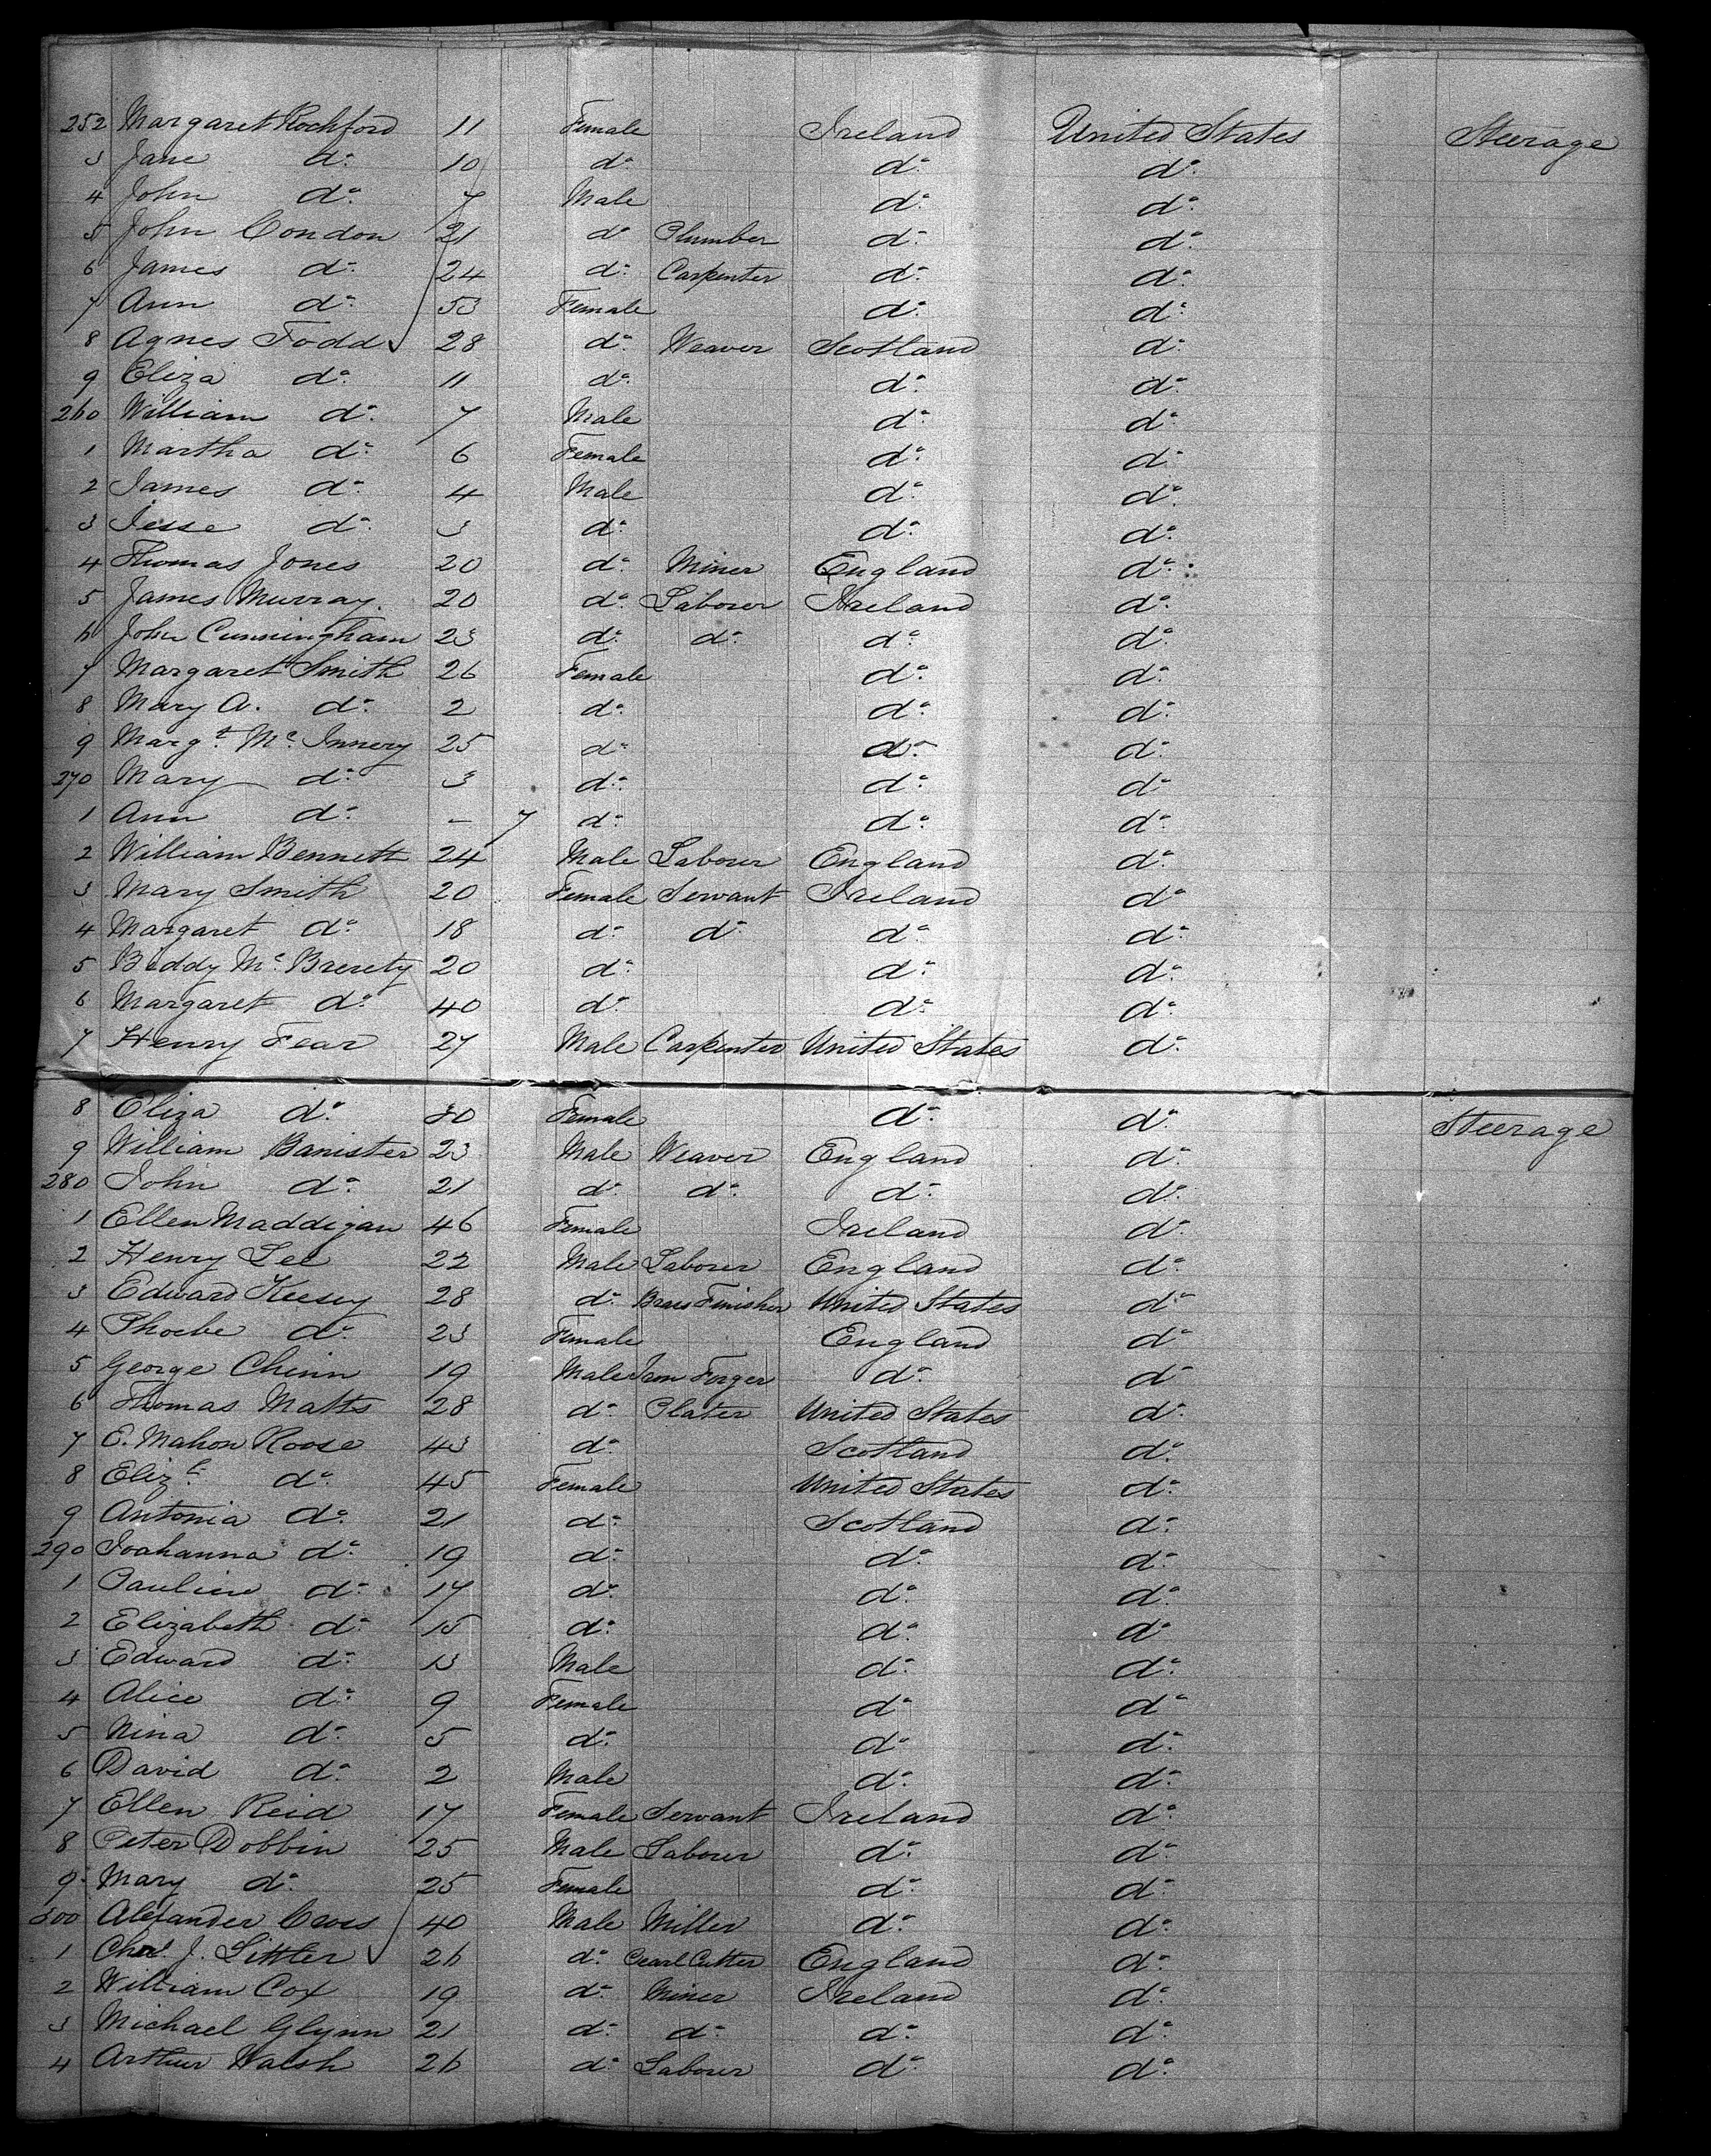 252 Margaret Rochford 11 Female Ireland United States Steerage
3 Jane do. 10 do. do. do.
4 John do. 7 Male do. do.
5 John Condon 21 do. Plumber do. do.
6 James do. 24 do. Carpenter do. do.
7 Ann do. 53 Female do. do.
8 Agnes Todd 28 do. Weaver Scotland do.
9 Eliza do. 11 do. do. do.
260 William do. 7 Male do. do.
1 Martha do. 6 Female do. do.
2 James do. 4 Male do. do.
3 Jesse do. 3 do. do. do.
4 Thomas Jones 20 do. Miner England do.
5 James Murray 20 do. Laborer Ireland do.
6 John Cunningham 23 do. do. do. do.
7 Margaret Smith 26 Female do. do.
8 Mary A. do. 2 do. do. do.
9 Margt. Mc. Innery 25 do. do. do.
270 Mary do. 3 do. do. do.
1 Ann do. - 7 do. do. do.
2 William Bennett 24 Male Laborer England do.
3 Mary Smith 20 Female Servant Ireland do.
4 Margaret do. 18 do. do. do. do.
5 Biddy Mc. Brerety 20 do. do. do.
6 Margaret do. 40 do. do. do.
7 Henry Fear 27 Male Carpenter United States do.
8 Eliza do. 30 Female do. do. Steerage
9 William Banister 23 Male Weaver England do.
280 John do. 21 do. do. do. do.
1 Ellen Maddigan 46 Female Ireland do.
2 Henry Lee 22 Male Laborer England do.
3 Edward Keesey 28 do. Brass Finisher United States do.
4 Phoebe do. 23 Female England do.
5 George Chinn 19 Male Iron Forger do. do.
6 Thomas Matts 28 do. Plater United States do.
7 E. Mahon Roose 43 do. Scotland do.
8 Elizth. do. 45 Female United States do.
9 Antonia do. 21 do. Scotland do.
290 Joahanna do. 19 do. do. do.
1 Pauline do. 17 do. do. do.
2 Elizabeth do. 15 do. do. do.
3 Edward do. 13 Male do. do.
4 Alice do. 9 Female do. do.
5 Nina do. 5 do. do. do.
6 David do. 2 Male do. do.
7 Ellen Reid 17 Female Servant Ireland do.
8 Peter Dobbin 25 Male Laborer do. do.
9 Mary do. 25 Female do. do.
300 Alexander Cross 40 Male Miller do. do.
1 Chas. J. Littler 26 do. Pearl Cutter England do.
2 William Cox 19 do. Miner Ireland do.
3 Michael Glynn 21 do. do. do. do.
4 Arthur Walsh 26 do. Laborer do. do.